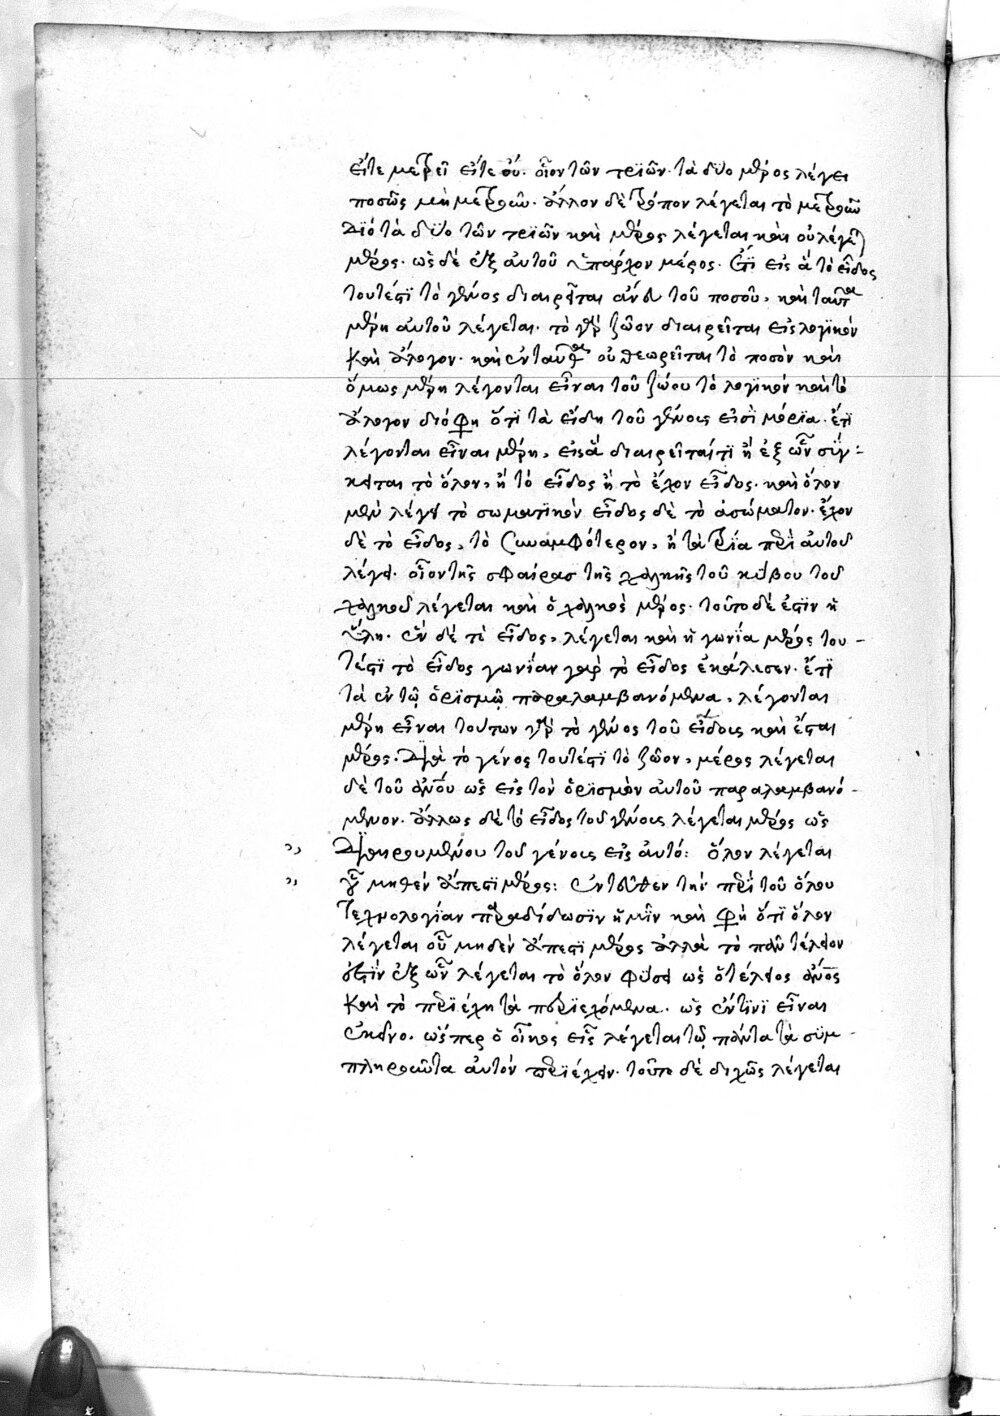 εἴτε μετρεῖ εἴτε οὔ. οἷον τῶν τριῶν τὰ δύο μέρος λέγει
ποσῶς μὴ μετροῦν. ἄλλον δὲ τρόπον λέγεται τὸ μετροῦν
Διὸ τὰ δύο τῶν τριῶν καὶ μέρος λέγεται καὶ οὐ λέγεται
μέρος. ὡς δὲ ἐξ αὐτοῦ ὑπάρχον μέρος. ἔτι εἰς ἃ τὸ εἶδος
τουτέστι τὸ γένος διαιρεῖται ἄνευ τοῦ ποσοῦ, καὶ ταῦτα
μέρη αὐτοῦ λέγεται. τὸ γὰρ ζῷον διαιρεῖται εἰς λογικὸν
καὶ ἄλογον. καὶ ἐνταῦθα οὐ θεωρεῖται τὸ ποσὸν καὶ
ὅμως μέρη λέγονται εἶναι τοῦ ζώου τὸ λογικὸν καὶ τὸ
ἄλογον διό φησι ὅτι τὰ εἴδη τοῦ γένους εἰσὶ μόρια. ἔτι
λέγονται εἶναι μέρη, εἰς ἃ διαιρεῖταί τι ἢ ἐξ ὧν σύγ-
κειται τὸ ὅλον, ἢ τὸ εἶδος ἢ τὸ ἔχον εἶδος. καὶ ὅλον
μὲν λέγει τὸ σωματικὸν εἶδος δὲ τὸ ἀσώματον. ἔχον
δὲ τὸ εἶδος, τὸ συναμφότερον, ἢ τὰ τρία περὶ αὐτοῦ
λέγει. οἷον τῆς σφαίρας τῆς χαλκῆς τοῦ κύβου τοῦ
χαλκοῦ λέγεται καὶ ὁ χαλκὸς μέρος. τοῦτο δέ ἐστιν ἡ
ὕλη. ὂν δὲ τὸ εἶδος, λέγεται καὶ ἡ γωνία μέρος του-
τέστι τὸ εἶδος γωνίαν γὰρ τὸ εἶδος ἐκάλεσεν. ἔτι
τὰ ἐν τῷ ὁρισμῷ παραλαμβανόμενα, λέγονται
μέρη εἶναι τούτων γὰρ τὸ γένος τοῦ εἴδους καὶ ἔσται
μέρος. Διὰ τὸ γένος τουτέστι τὸ ζῷον, μέρος λέγεται
δὲ τοῦ ἀνου ὡς εἰς τὸν ὁρισμὸν αὐτοῦ παραλαμβανό-
μενον. ἄλλως δὲ τὸ εἶδος τοῦ γένους λέγεται μέρος ὡς
Διαιρουμένου τοῦ γένους εἰς αὐτό: ὅλον λέγεται
οὗ μηθὲν ἄπεστι μέρος: ἐντεῦθεν τὴν περὶ τοῦ ὅλου
τεχνολογίαν παραδίδωσιν ἡμῖν καὶ φησὶ ὅτι ὅλον
λέγεται οὗ μηδὲν ἄπεστι μέρος ἀλλὰ τὸ πᾶν τέλειον
ἐστὶν ἐξ ὧν λέγεται τὸ ὅλον φύσει ὡς ὁ τέλειος ἄνος
καὶ τὸ περιέχῃ τὰ περιεχόμενα. ὡς ἕν τινι εἶναι
ἐκεῖνο. ὥσπερ ὁ οἶκος εἷς λέγεται τῷ πάντα τὰ συμ-
πληροῦντα αὐτὸν περιέχειν. τοῦτο δὲ διχῶς λέγεται